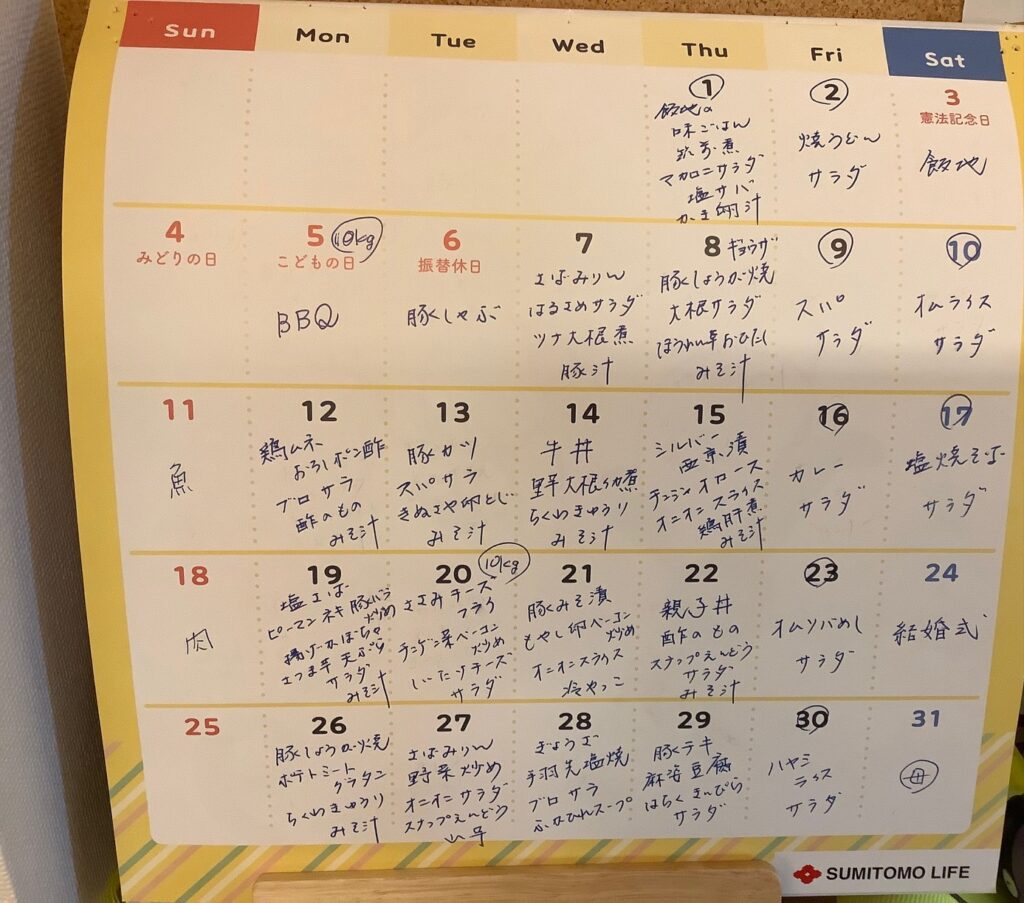 Sun Mon Tue Wed Thu Fri Sat
1
飯地の
味ごはん
煮
マカロニサラダ
塩サバ
かき卵汁
2
焼うどん
サラダ
3
憲法記念日
飯地
4
みどりの日
5 10kg
こどもの日
BBQ
6
振替休日
豚しゃぶ
7
さばみりん
はるさめサラダ
ツナ大根煮
豚汁
8 ギョウザ
豚しょうが焼
大根サラダ
ほうれん草おひたし
みそ汁
9
スパ
サラダ
10
オムライス
サラダ
11
魚
12
鶏ムネ
おろしポン酢
ブロサラ
酢のもの
みそ汁
13
豚カツ
スパサラ
きぬさや卵とじ
みそ汁
14
牛丼
野大根煮
ちくわきゅうり
みそ汁
15
シルバー
西京漬
チンジャオロース
オニオンスライス
鶏肝煮
みそ汁
16
カレー
サラダ
17
塩焼そば
サラダ
18
肉
19
塩さば
ピーマンネギ豚バラ
炒め
揚げかぼちゃ
さつま芋天ぷら
サラダ
みそ汁
20 10kg
ささみチーズ
フライ
チンゲン菜ベーコン
炒め
しいたけチーズ
サラダ
21
豚みそ漬
もやし卵ベーコン
炒め
オニオンスライス
冷やっこ
22
親子丼
酢のもの
スナップえんどう
サラダ
みそ汁
23
オムソバめし
サラダ
24
結婚式
25
26
豚しょうが焼
ポテトミート
グラタン
ちくわきゅうり
みそ汁
27
さばみりん
野菜炒め
オニオンサラダ
スナップえんどう
山芋
28
ぎょうざ
手羽先塩焼
ブロサラ
スープ
29
豚テキ
麻婆豆腐
きんぴら
サラダ
30
ハヤシ
ライス
サラダ
31
母
SUMITOMO LIFE